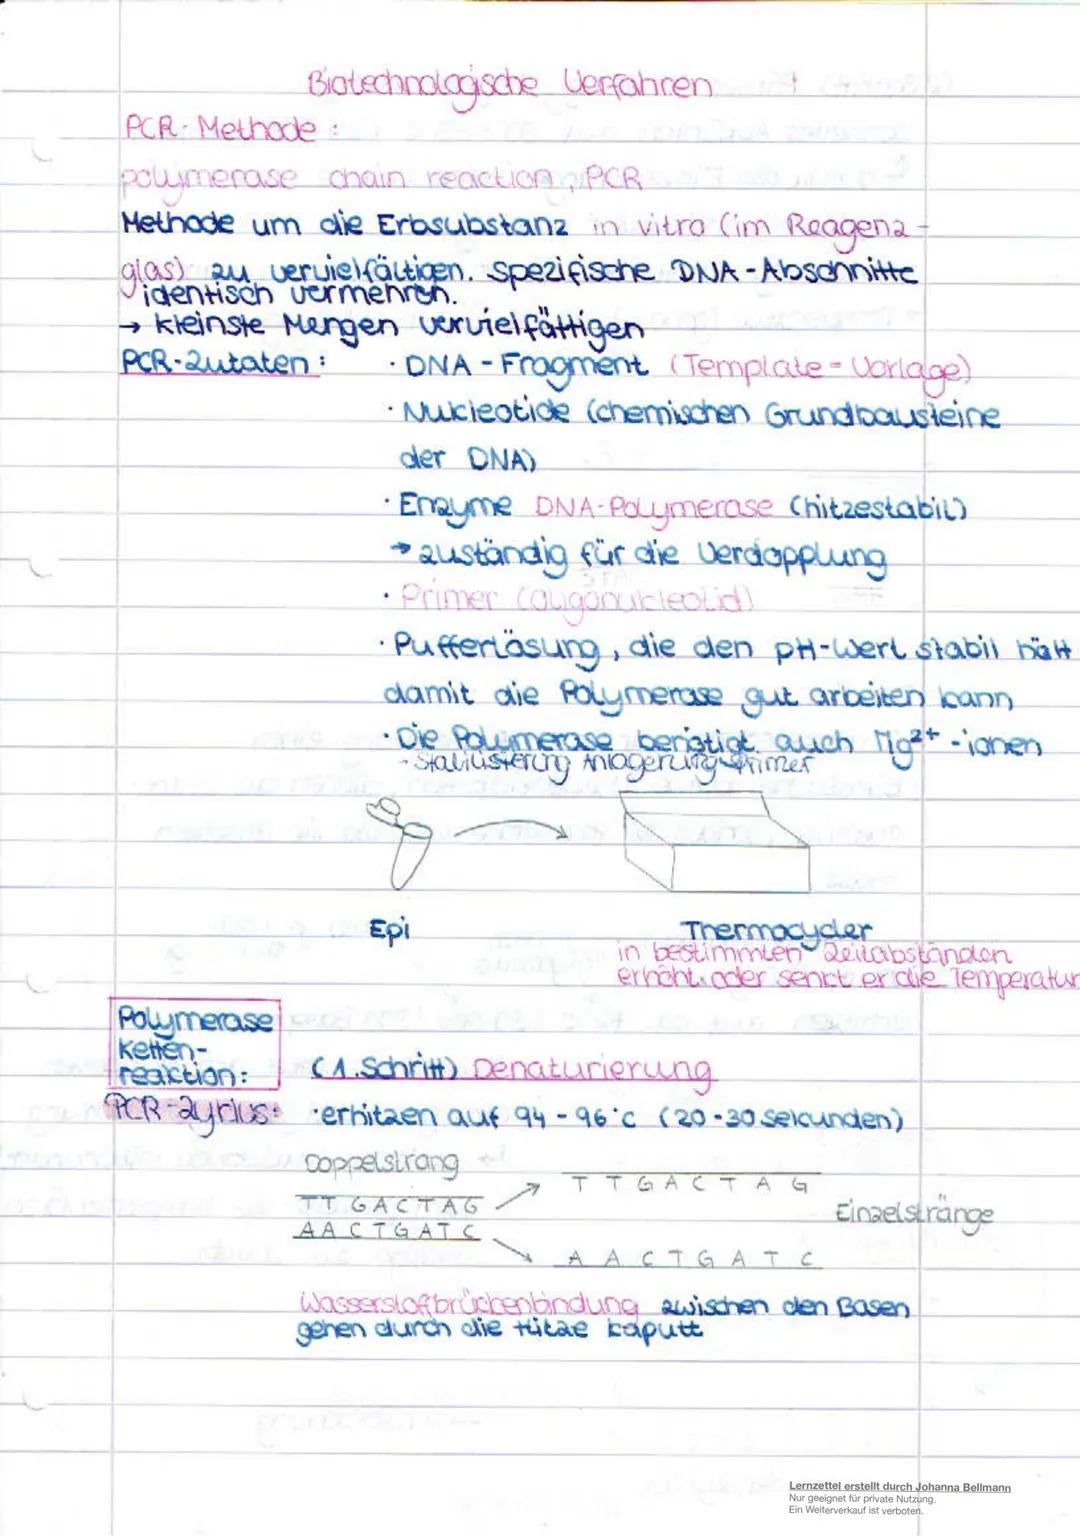 Biotechnologische Verfahren
PCR-Methode:
polymerase chain reaction, PCR
Methode um die Erbsubstanz in vitro (im Reagenz-
glas) zu vervielfältigen. Spezifische DNA-Abschnitte
identisch vermehren.
→ kleinste Mengen vervielfältigen
PCR-Zutaten: · DNA-Fragment (Template-Vorlage)
· Nukleotide (chemischen Grundbausteine
der DNA)
· Enzyme DNA-Polymerase (hitzestabil)
→ zuständig für die Verdopplung
· Primer (Oligonukleotid)
· Pufferlösung, die den pH-Wert stabil hält
damit die Polymerase gut arbeiten kann
· Die Polymerase benötigt auch Mg²⁺-ionen
- Stabilisierung Anlagerung Primer
Epi Thermocycler
in bestimmten Zeitabständen
erhöht oder senkt er die Temperatur
Polymerase
Ketten-
reaktion: (1. Schritt) Denaturierung
PCR-Zyklus: · erhitzen auf 94-96°C (20-30 Sekunden)
Doppelstrang
TTGACTAG
AACTGATC
TTGACTAG
Einzelstränge
AACTGATC
Wasserstoffbrückenbindung zwischen den Basen
gehen durch die Hitze kaputt
Lernzettel erstellt durch Johanna Bellmann
Nur geeignet für private Nutzung.
Ein Weiterverkauf ist verboten.